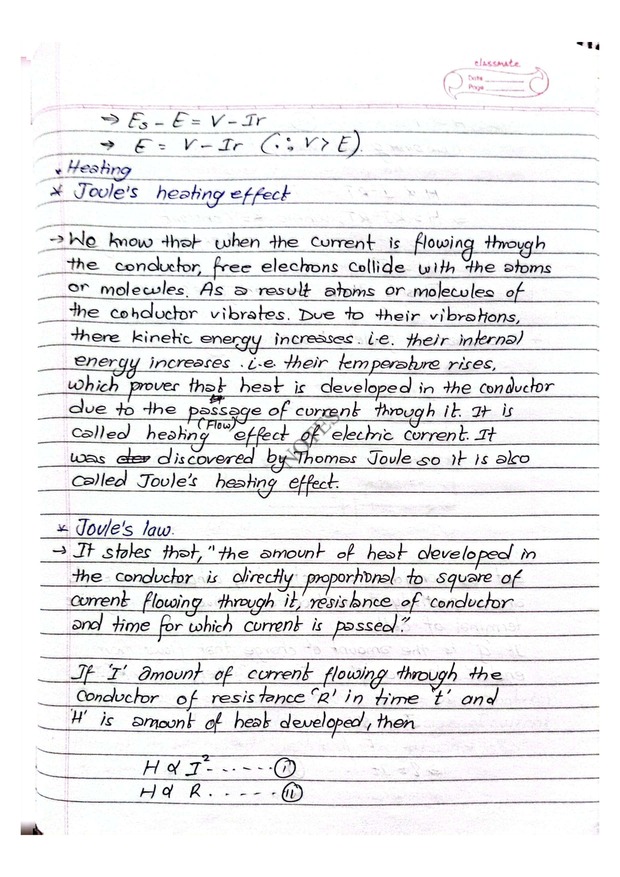 classmate
Date
Page
→ Es - E = V - Ir
→ E = V - Ir (∵ V > E).
* Heating
* Joule's heating effect
→ We know that when the current is flowing through
the conductor, free electrons collide with the atoms
or molecules. As a result atoms or molecules of
the conductor vibrates. Due to their vibrations,
there kinetic energy increases. i.e. their internal
energy increases. i.e. their temperature rises,
which proves that heat is developed in the conductor
due to the passage of current through it. It is
(Flow)
called heating effect of electric current. It
was discovered by Thomas Joule so it is also
called Joule's heating effect.
NOTES
* Joule's law.
→ It states that, "the amount of heat developed in
the conductor is directly proportional to square of
current flowing through it, resistance of conductor
and time for which current is passed."
If 'I' amount of current flowing through the
conductor of resistance 'R' in time 't' and
'H' is amount of heat developed, then
H ∝ I² ------ (i)
H ∝ R. ----- (ii)